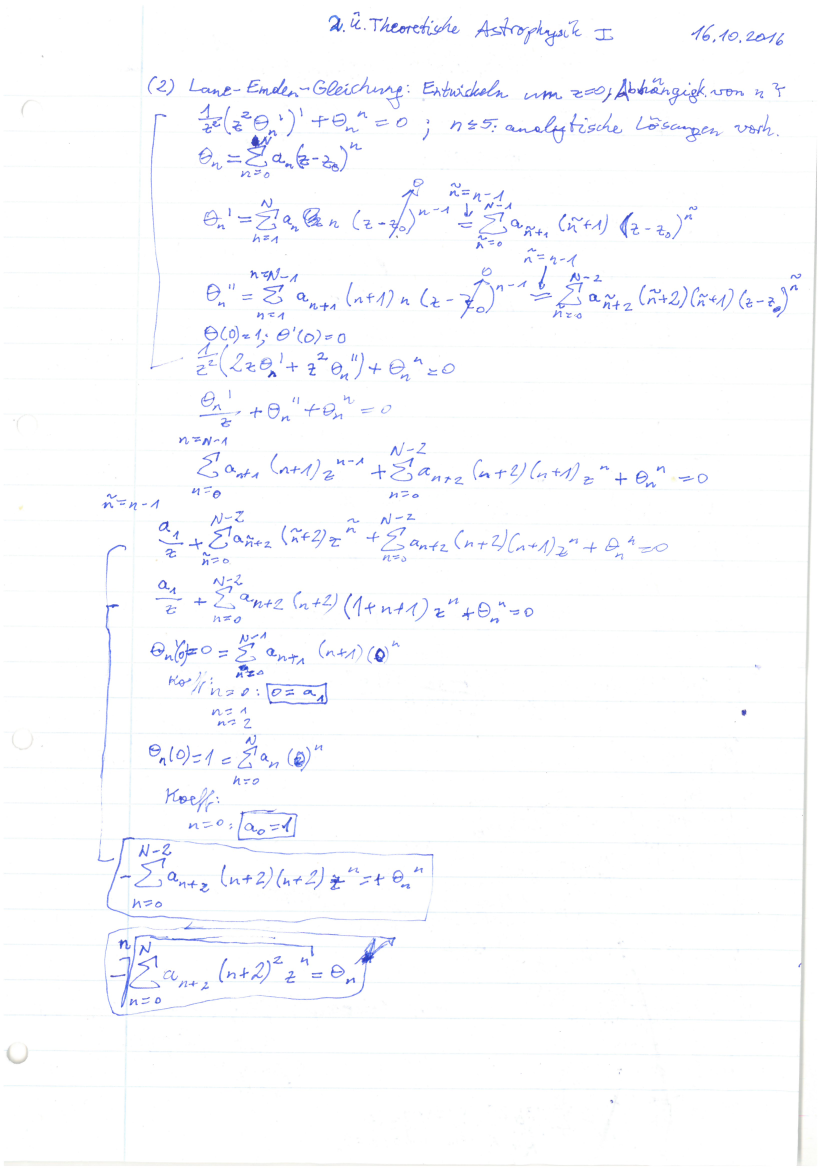 2. Ü. Theoretische Astrophysik I 16.10.2016
(2) Lane-Emden-Gleichung: Entwickeln um z=0, Abhängigk. von n?
1/z² (z² Θₙ')' + Θₙⁿ = 0 ; n≤5: analytische Lösungen vorh.
Θₙ = Σ_{n=0}^{N} aₙ (z-z₀)ⁿ
ñ=n-1
Θₙ' = Σ_{n=1}^{N} aₙ n (z-z₀)^{n-1} = Σ_{ñ=0}^{N-1} a_{ñ+1} (ñ+1) (z-z₀)^ñ
ñ=n-1
Θₙ'' = Σ_{n=1}^{n=N-1} a_{n+1} (n+1) n (z-z₀)^{n-1} = Σ_{ñ=0}^{N-2} a_{ñ+2} (ñ+2)(ñ+1) (z-z₀)^ñ
Θ(0)=1; Θ'(0)=0
1/z² (2zΘₙ' + z² Θₙ'') + Θₙⁿ = 0
Θₙ'/z + Θₙ'' + Θₙⁿ = 0
Σ_{n=0}^{n=N-1} a_{n+1} (n+1) z^{n-1} + Σ_{n=0}^{N-2} a_{n+2} (n+2)(n+1) zⁿ + Θₙⁿ = 0
ñ=n-1
a₁/z + Σ_{ñ=0}^{N-2} a_{ñ+2} (ñ+2) z^ñ + Σ_{n=0}^{N-2} a_{n+2} (n+2)(n+1) zⁿ + Θₙⁿ = 0
a₁/z + Σ_{n=0}^{N-2} a_{n+2} (n+2) (1+n+1) zⁿ + Θₙⁿ = 0
Θₙ'(0) = 0 = Σ_{n=0}^{N-1} a_{n+1} (n+1) (0)ⁿ
Koeff.: n=0: 0=a₁
n=1
n=2
Θₙ(0) = 1 = Σ_{n=0}^{N} aₙ (0)ⁿ
Koeff.:
n=0: a₀=1
-Σ_{n=0}^{N-2} a_{n+2} (n+2)(n+2) zⁿ = + Θₙⁿ
-ⁿ√(Σ_{n=0}^{N} a_{n+2} (n+2)² zⁿ) = Θₙ